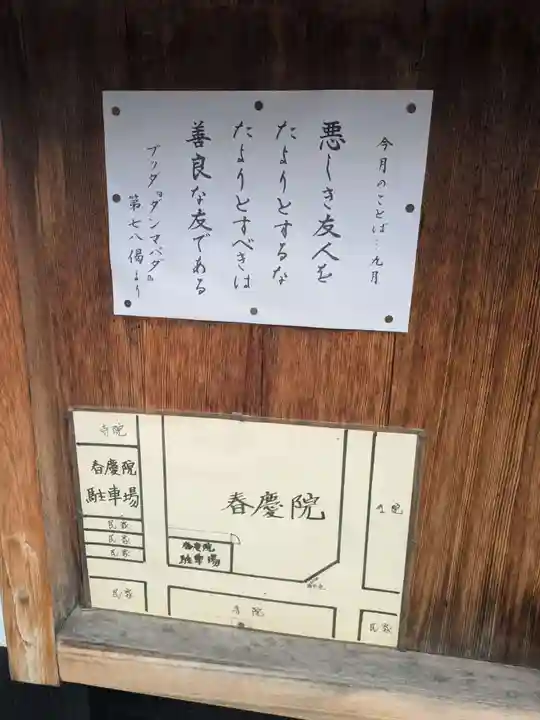 今月のことば…九月
悪しき友人を
たよりとするな
たよりとすべきは
善良な友である
ブッダ『ダンマパダ』
第七八偈より
寺院
春慶院
駐車場
民家
民家
民家
民家
春慶院
春慶院
駐車場
寺院
民家